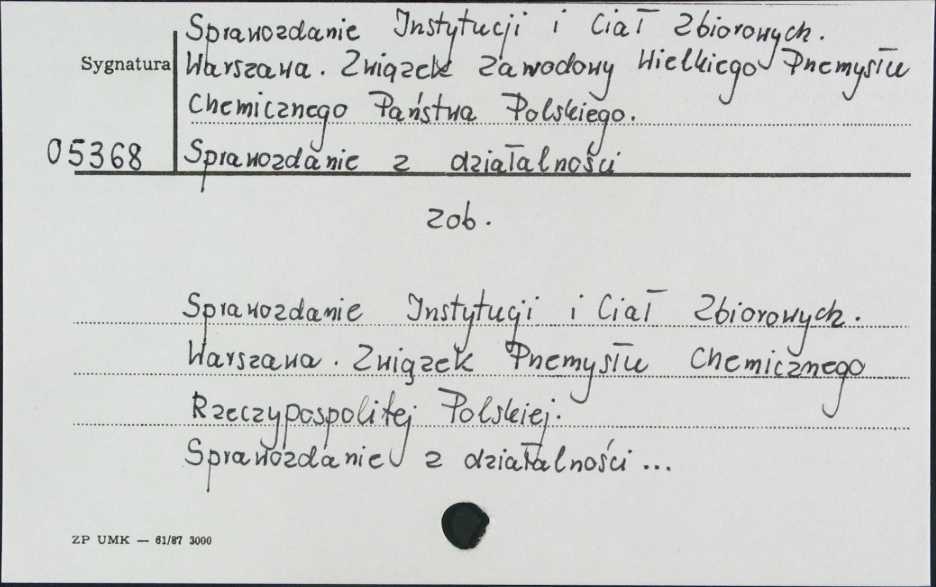 Sprawozdanie Instytucji i Ciał Zbiorowych.
Sygnatura Warszawa. Związek Zawodowy Wielkiego Przemysłu
Chemicznego Państwa Polskiego.
05368 Sprawozdanie z działalności
zob.
Sprawozdanie Instytucji i Ciał Zbiorowych.
Warszawa. Związek Przemysłu Chemicznego
Rzeczypospolitej Polskiej.
Sprawozdanie z działalności...
ZP UMK — 61/87 3000